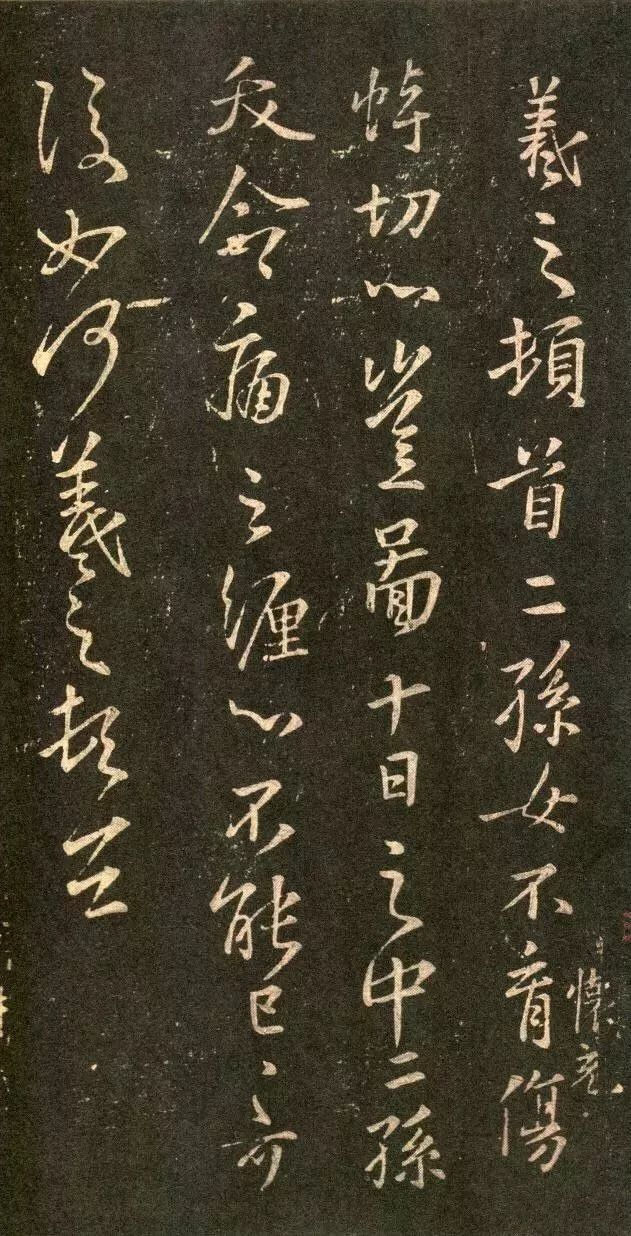 羲之頓首二孫女不育傷
懷充
悼切心豈圖十日之中二孫
夭命痛之纏心不能已〻可
復如何羲之頓首